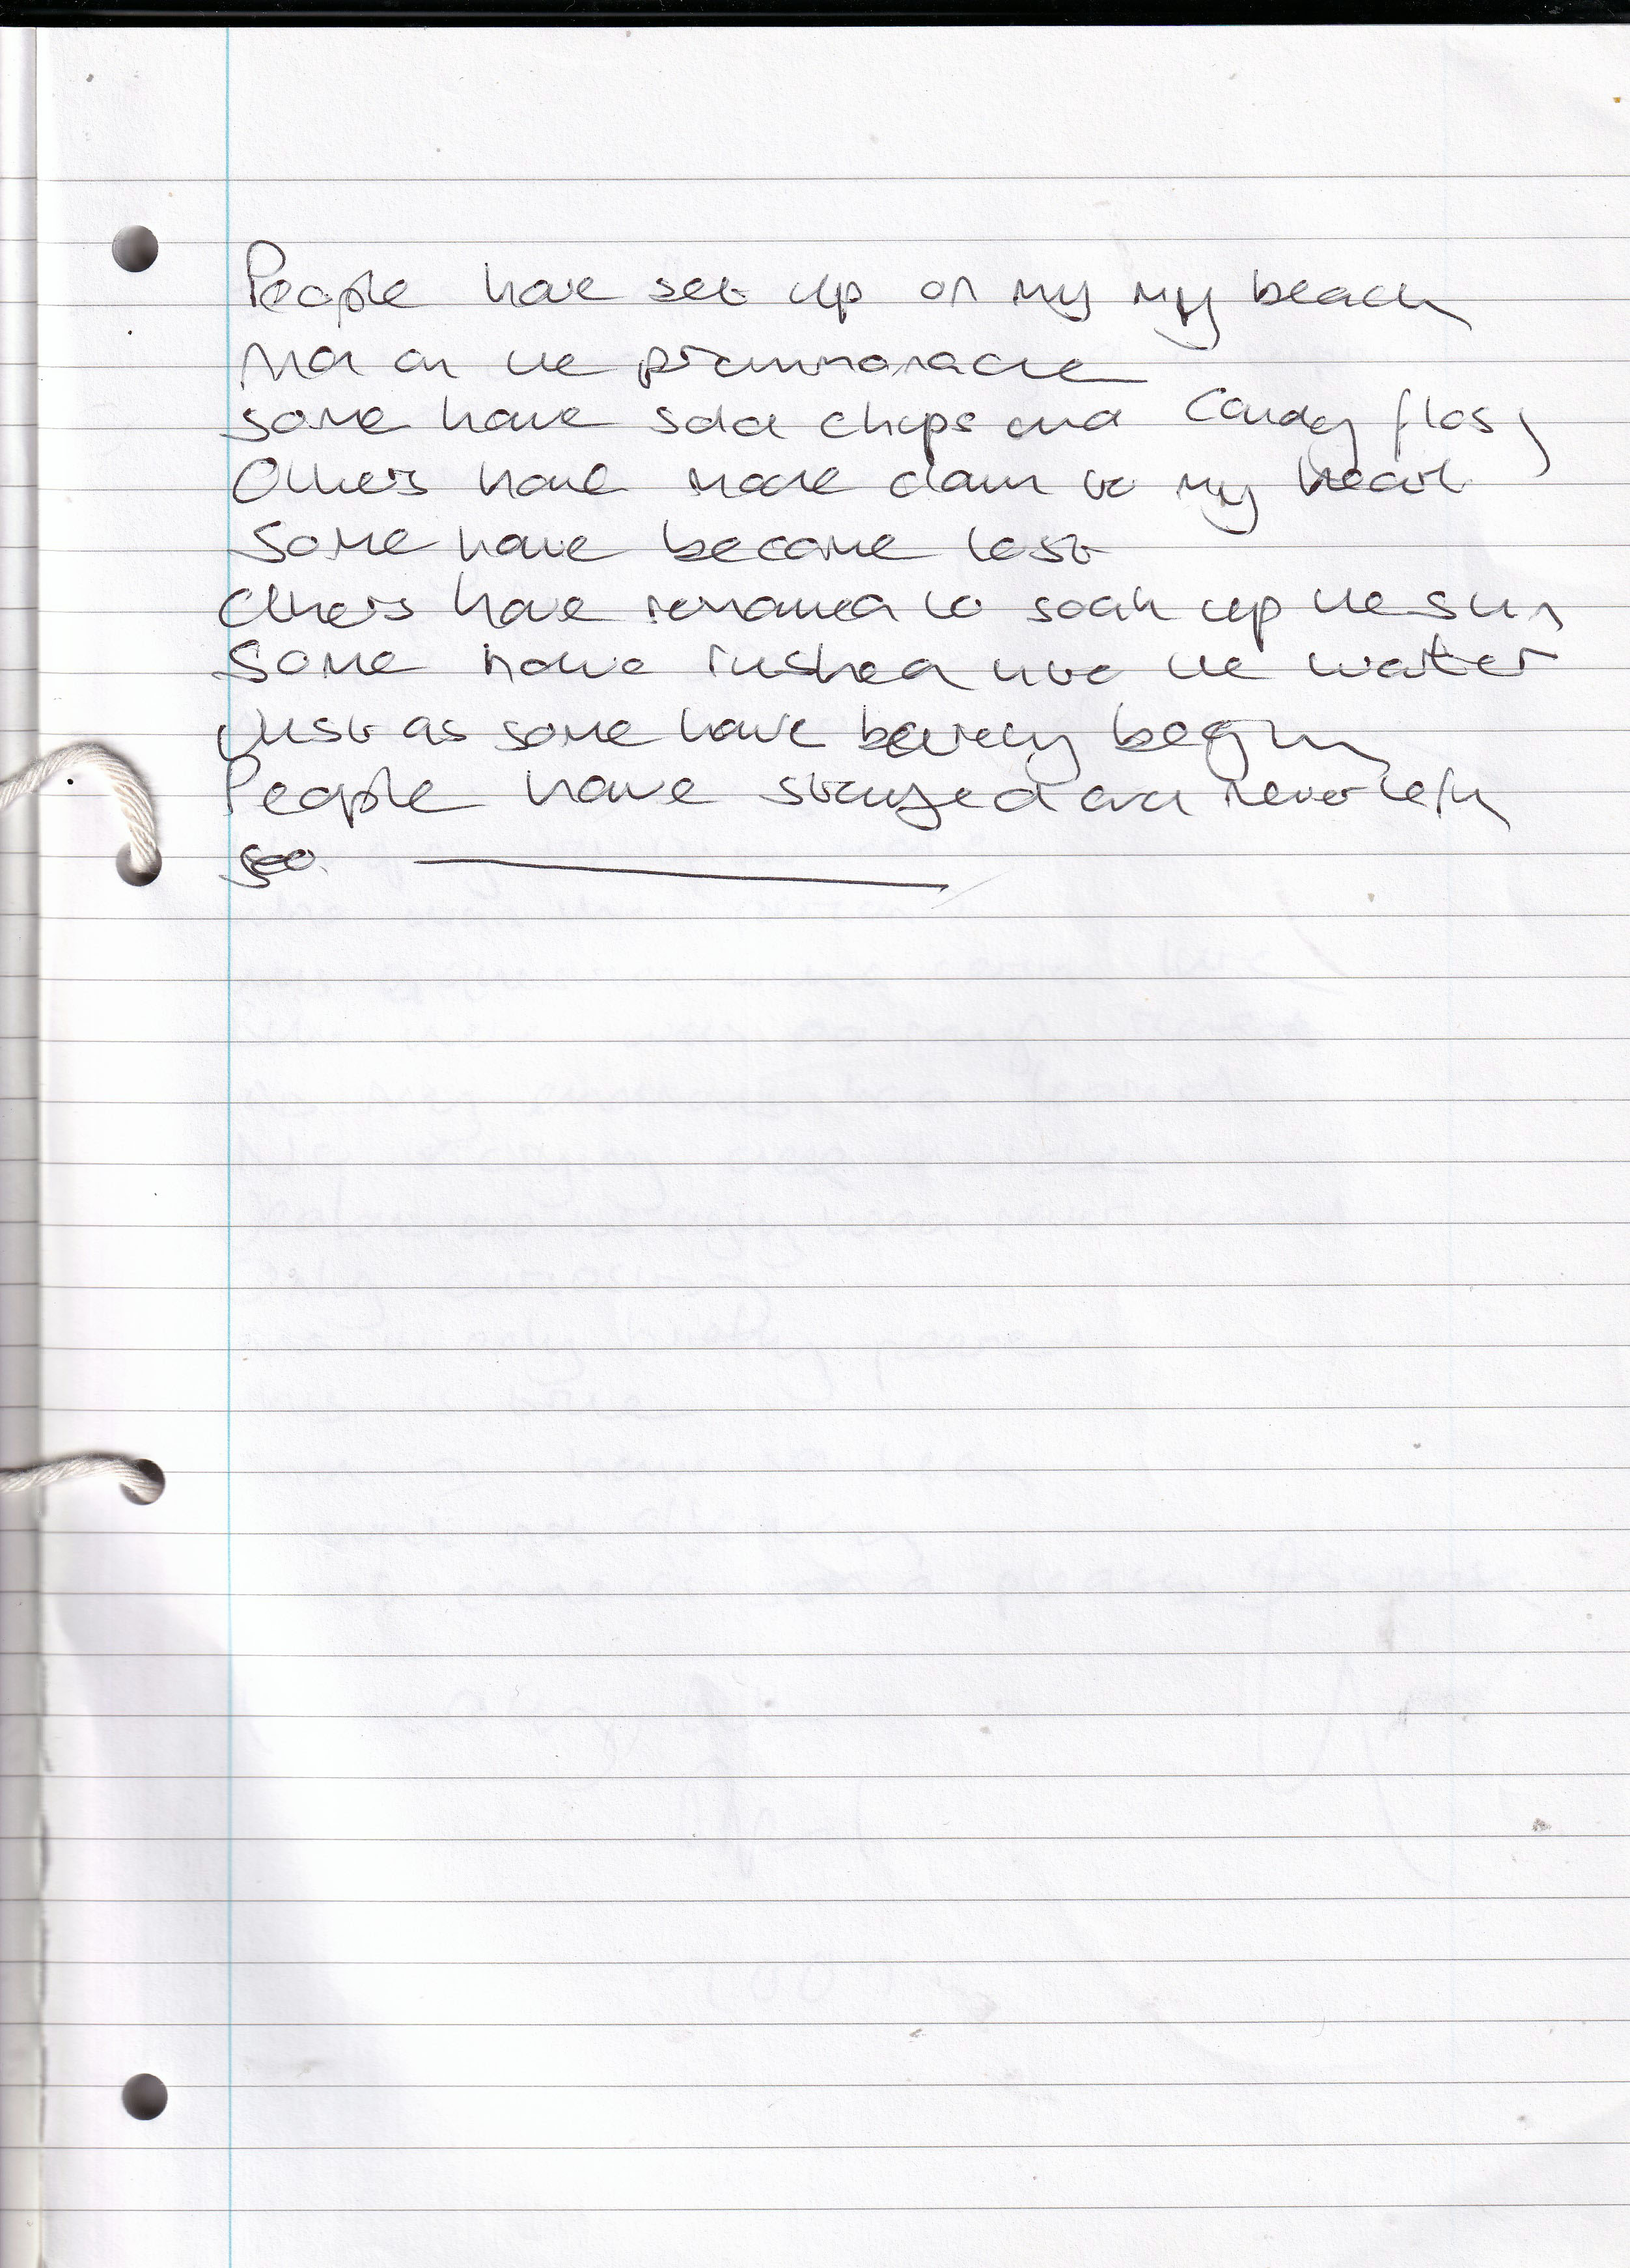 People have set up on my my beach
And on the prommonade
some have sold chips and Candy floss
Others have made claim to my heart
Some have become lost
Others have remained to soak up the sun
Some have rushed into the water
Just as some have barely begun
People have stayed and never left